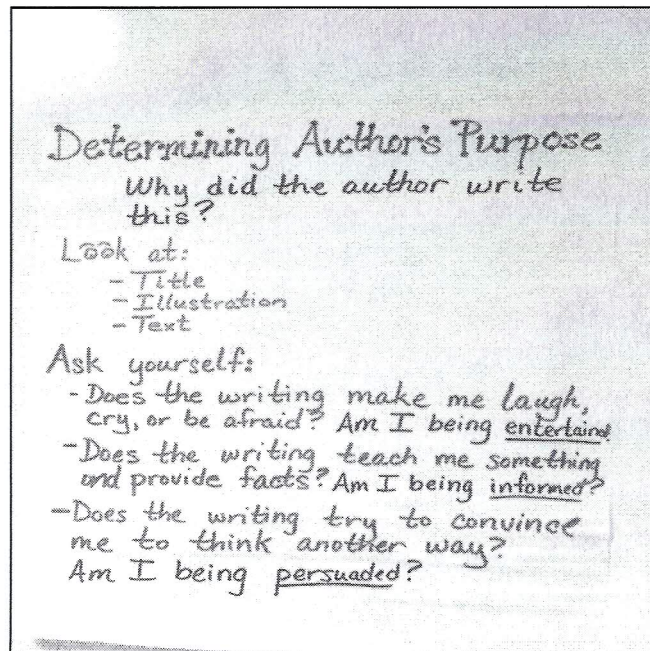 Determining Author's Purpose
Why did the author write
this?
Look at:
- Title
- Illustration
- Text
Ask yourself:
- Does the writing make me laugh,
cry, or be afraid? Am I being entertained
- Does the writing teach me something
and provide facts? Am I being informed?
- Does the writing try to convince
me to think another way?
Am I being persuaded?